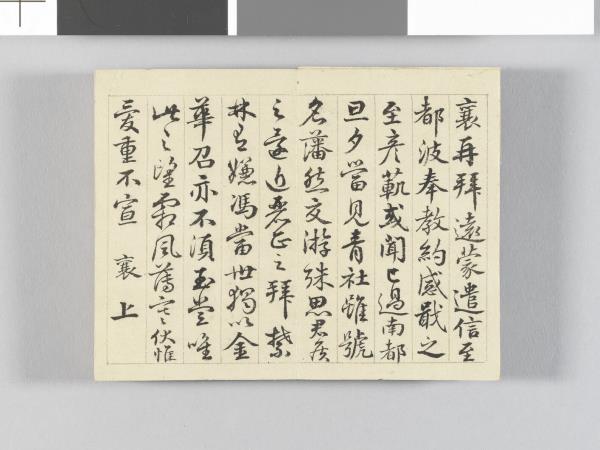 襄再拜遠蒙遣信至
都波奉教約感戢之
至彥範或聞已過南都
旦夕當見青社雖號
名藩然交游殊思君侯
之還近麗正之拜禁
林有嫌馮當世獨以金
華召亦不須玉堂唯
此之望霜風薄寒伏惟
愛重不宣 襄 上